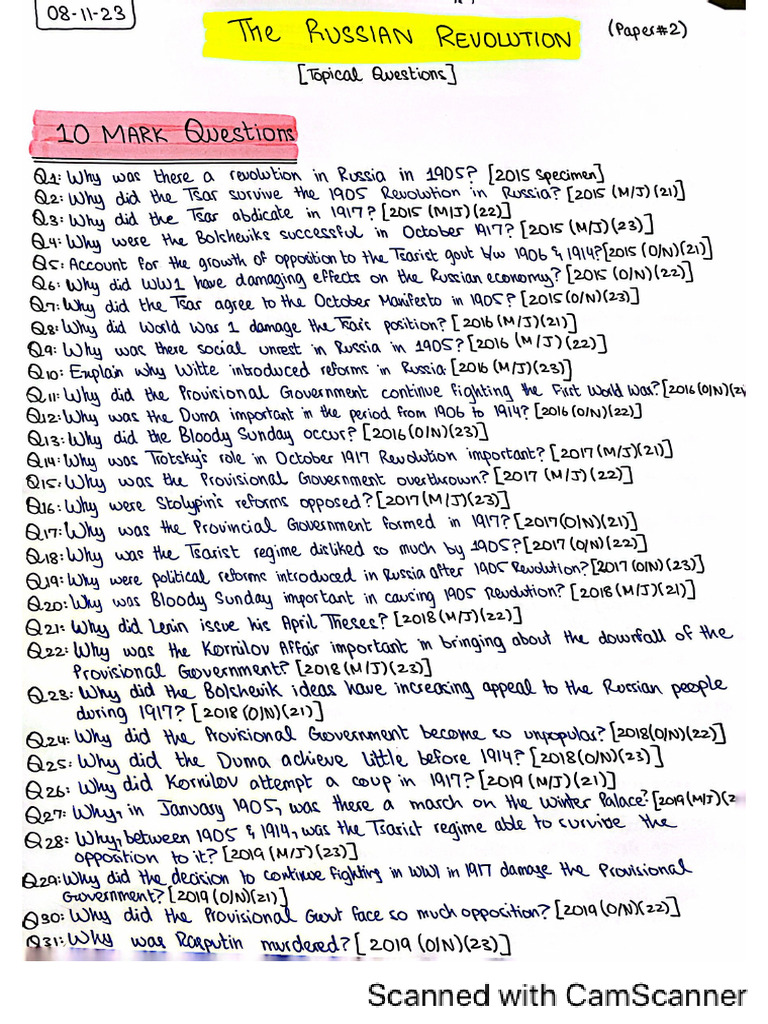 08-11-23
The RUSSIAN REVOLUTION (Paper#2)
[Topical Questions]
10 MARK Questions
Q1: Why was there a revolution in Russia in 1905? [2015 Specimen]
Q2: Why did the Tsar survive the 1905 Revolution in Russia? [2015 (M/J)(21)]
Q3: Why did the Tsar abdicate in 1917? [2015 (M/J)(22)]
Q4: Why were the Bolsheviks successful in October 1917? [2015 (M/J)(23)]
Q5: Account for the growth of opposition to the Tsarist govt b/w 1906 & 1914? [2015 (O/N)(21)]
Q6: Why did WW1 have damaging effects on the Russian economy? [2015 (O/N)(22)]
Q7: Why did the Tsar agree to the October Manifesto in 1905? [2015 (O/N)(23)]
Q8: Why did World War 1 damage the Tsar's position? [2016 (M/J)(21)]
Q9: Why was there social unrest in Russia in 1905? [2016 (M/J)(22)]
Q10: Explain why Witte introduced reforms in Russia. [2016 (M/J)(23)]
Q11: Why did the Provisional Government continue fighting the First World War? [2016 (O/N)(21
Q12: Why was the Duma important in the period from 1906 to 1914? [2016 (O/N)(22)]
Q13: Why did the Bloody Sunday occur? [2016 (O/N)(23)]
Q14: Why was Trotsky's role in October 1917 Revolution important? [2017 (M/J)(21)]
Q15: Why was the Provisional Government overthrown? [2017 (M/J)(22)]
Q16: Why were Stolypin's reforms opposed? [2017 (M/J)(23)]
Q17: Why was the Provincial Government formed in 1917? [2017 (O/N)(21)]
Q18: Why was the Tsarist regime disliked so much by 1905? [2017 (O/N)(22)]
Q19: Why were political reforms introduced in Russia after 1905 Revolution? [2017 (O/N)(23)]
Q20: Why was Bloody Sunday important in causing 1905 Revolution? [2018 (M/J)(21)]
Q21: Why did Lenin issue his April Theses? [2018 (M/J)(22)]
Q22: Why was the Kornilov Affair important in bringing about the downfall of the
Provisional Government? [2018 (M/J)(23)]
Q23: Why did the Bolshevik ideas have increasing appeal to the Russian people
during 1917? [2018 (O/N)(21)]
Q24: Why did the Provisional Government become so unpopular? [2018 (O/N)(22)]
Q25: Why did the Duma achieve little before 1914? [2018 (O/N)(23)]
Q26: Why did Kornilov attempt a coup in 1917? [2019 (M/J)(21)]
Q27: Why, in January 1905, was there a march on the Winter Palace? [2019 (M/J)(2
Q28: Why, between 1905 & 1914, was the Tsarist regime able to survive the
opposition to it? [2019 (M/J)(23)]
Q29: Why did the decision to continue fighting in WW1 in 1917 damage the Provisional
Government? [2019 (O/N)(21)]
Q30: Why did the Provisional Govt face so much opposition? [2019 (O/N)(22)]
Q31: Why was Rasputin murdered? [2019 (O/N)(23)]
Scanned with CamScanner